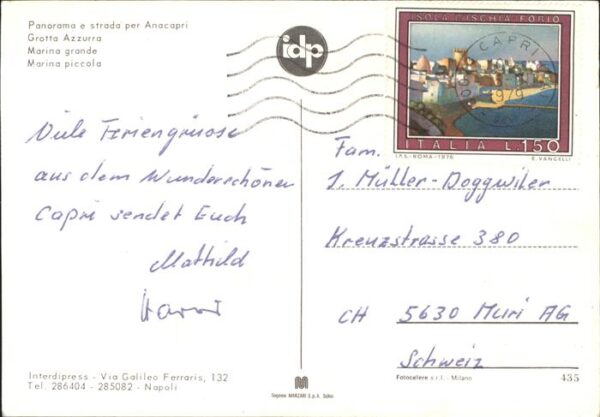 Panorama e strada per Anacapri
Grotta Azzurra
Marina grande
Marina piccola
idp
CAPRI
ISOLA D'ISCHIA-FORIO
ITALIA L.150
I.P.S.-ROMA-1976 E. VANGELLI
Viele Feriengrüsse
aus dem Wunderschönen
Capri sendet Euch
Mathild
Fam.
J. Müller-Doggwiler
Kreuzstrasse 380
CH 5630 Muri AG
Schweiz
Interdipress - Via Galileo Ferraris, 132
Tel. 286404 - 285082 - Napoli
M
Fotocelere s.r.l. - Milano 435